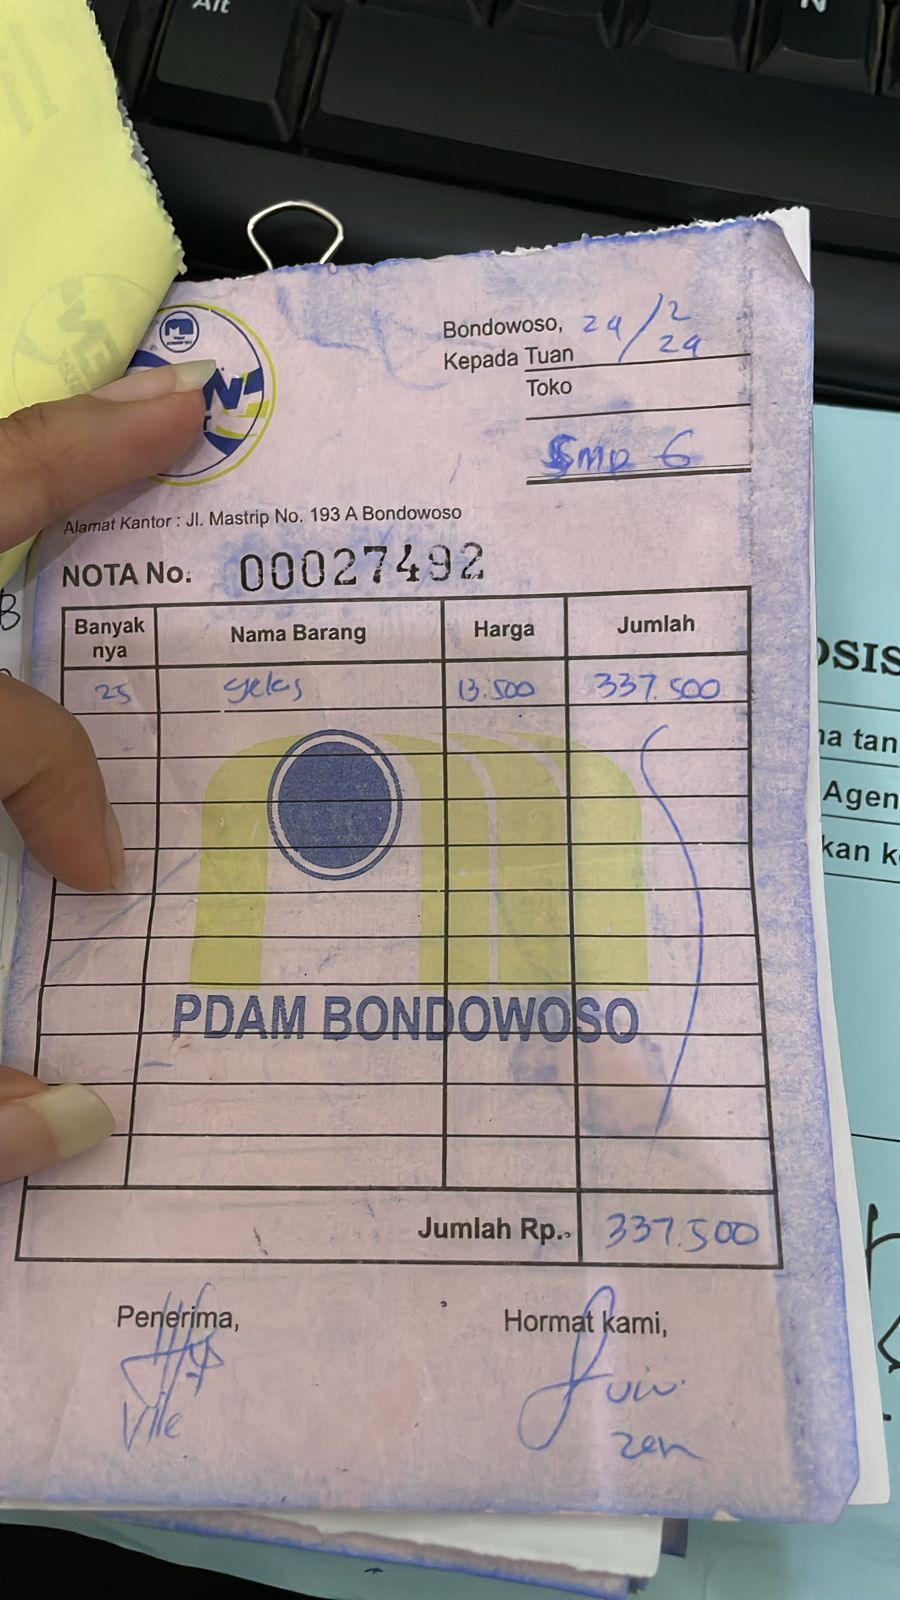 Alt
N
Bondowoso, 29/2
24
Kepada Tuan
Toko
Smp 6
Alamat Kantor : Jl. Mastrip No. 193 A Bondowoso
NOTA No. 00027492
Banyak nya Nama Barang Harga Jumlah
25 gelas 13.500 337.500
PDAM BONDOWOSO
Jumlah Rp. 337.500
Penerima, Hormat kami,
Vile
zen
OSIS
Agen